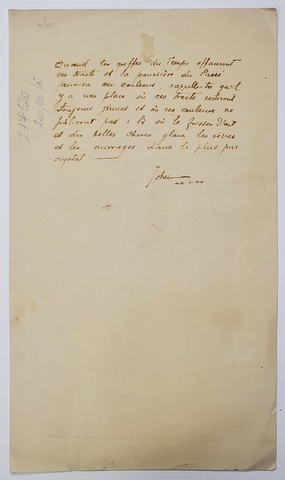 Quand les griffes du Temps effaceront
ces traits et la poussière du Passé
jaunira ces couleurs, rappelle-toi qu'il
y a une place où ces traits resteront
toujours jeunes et où ces couleurs ne
pâliront pas : Là où le frisson d'art
et des belles choses glace les rêves
et les mirages dans le plus pur
crystal.